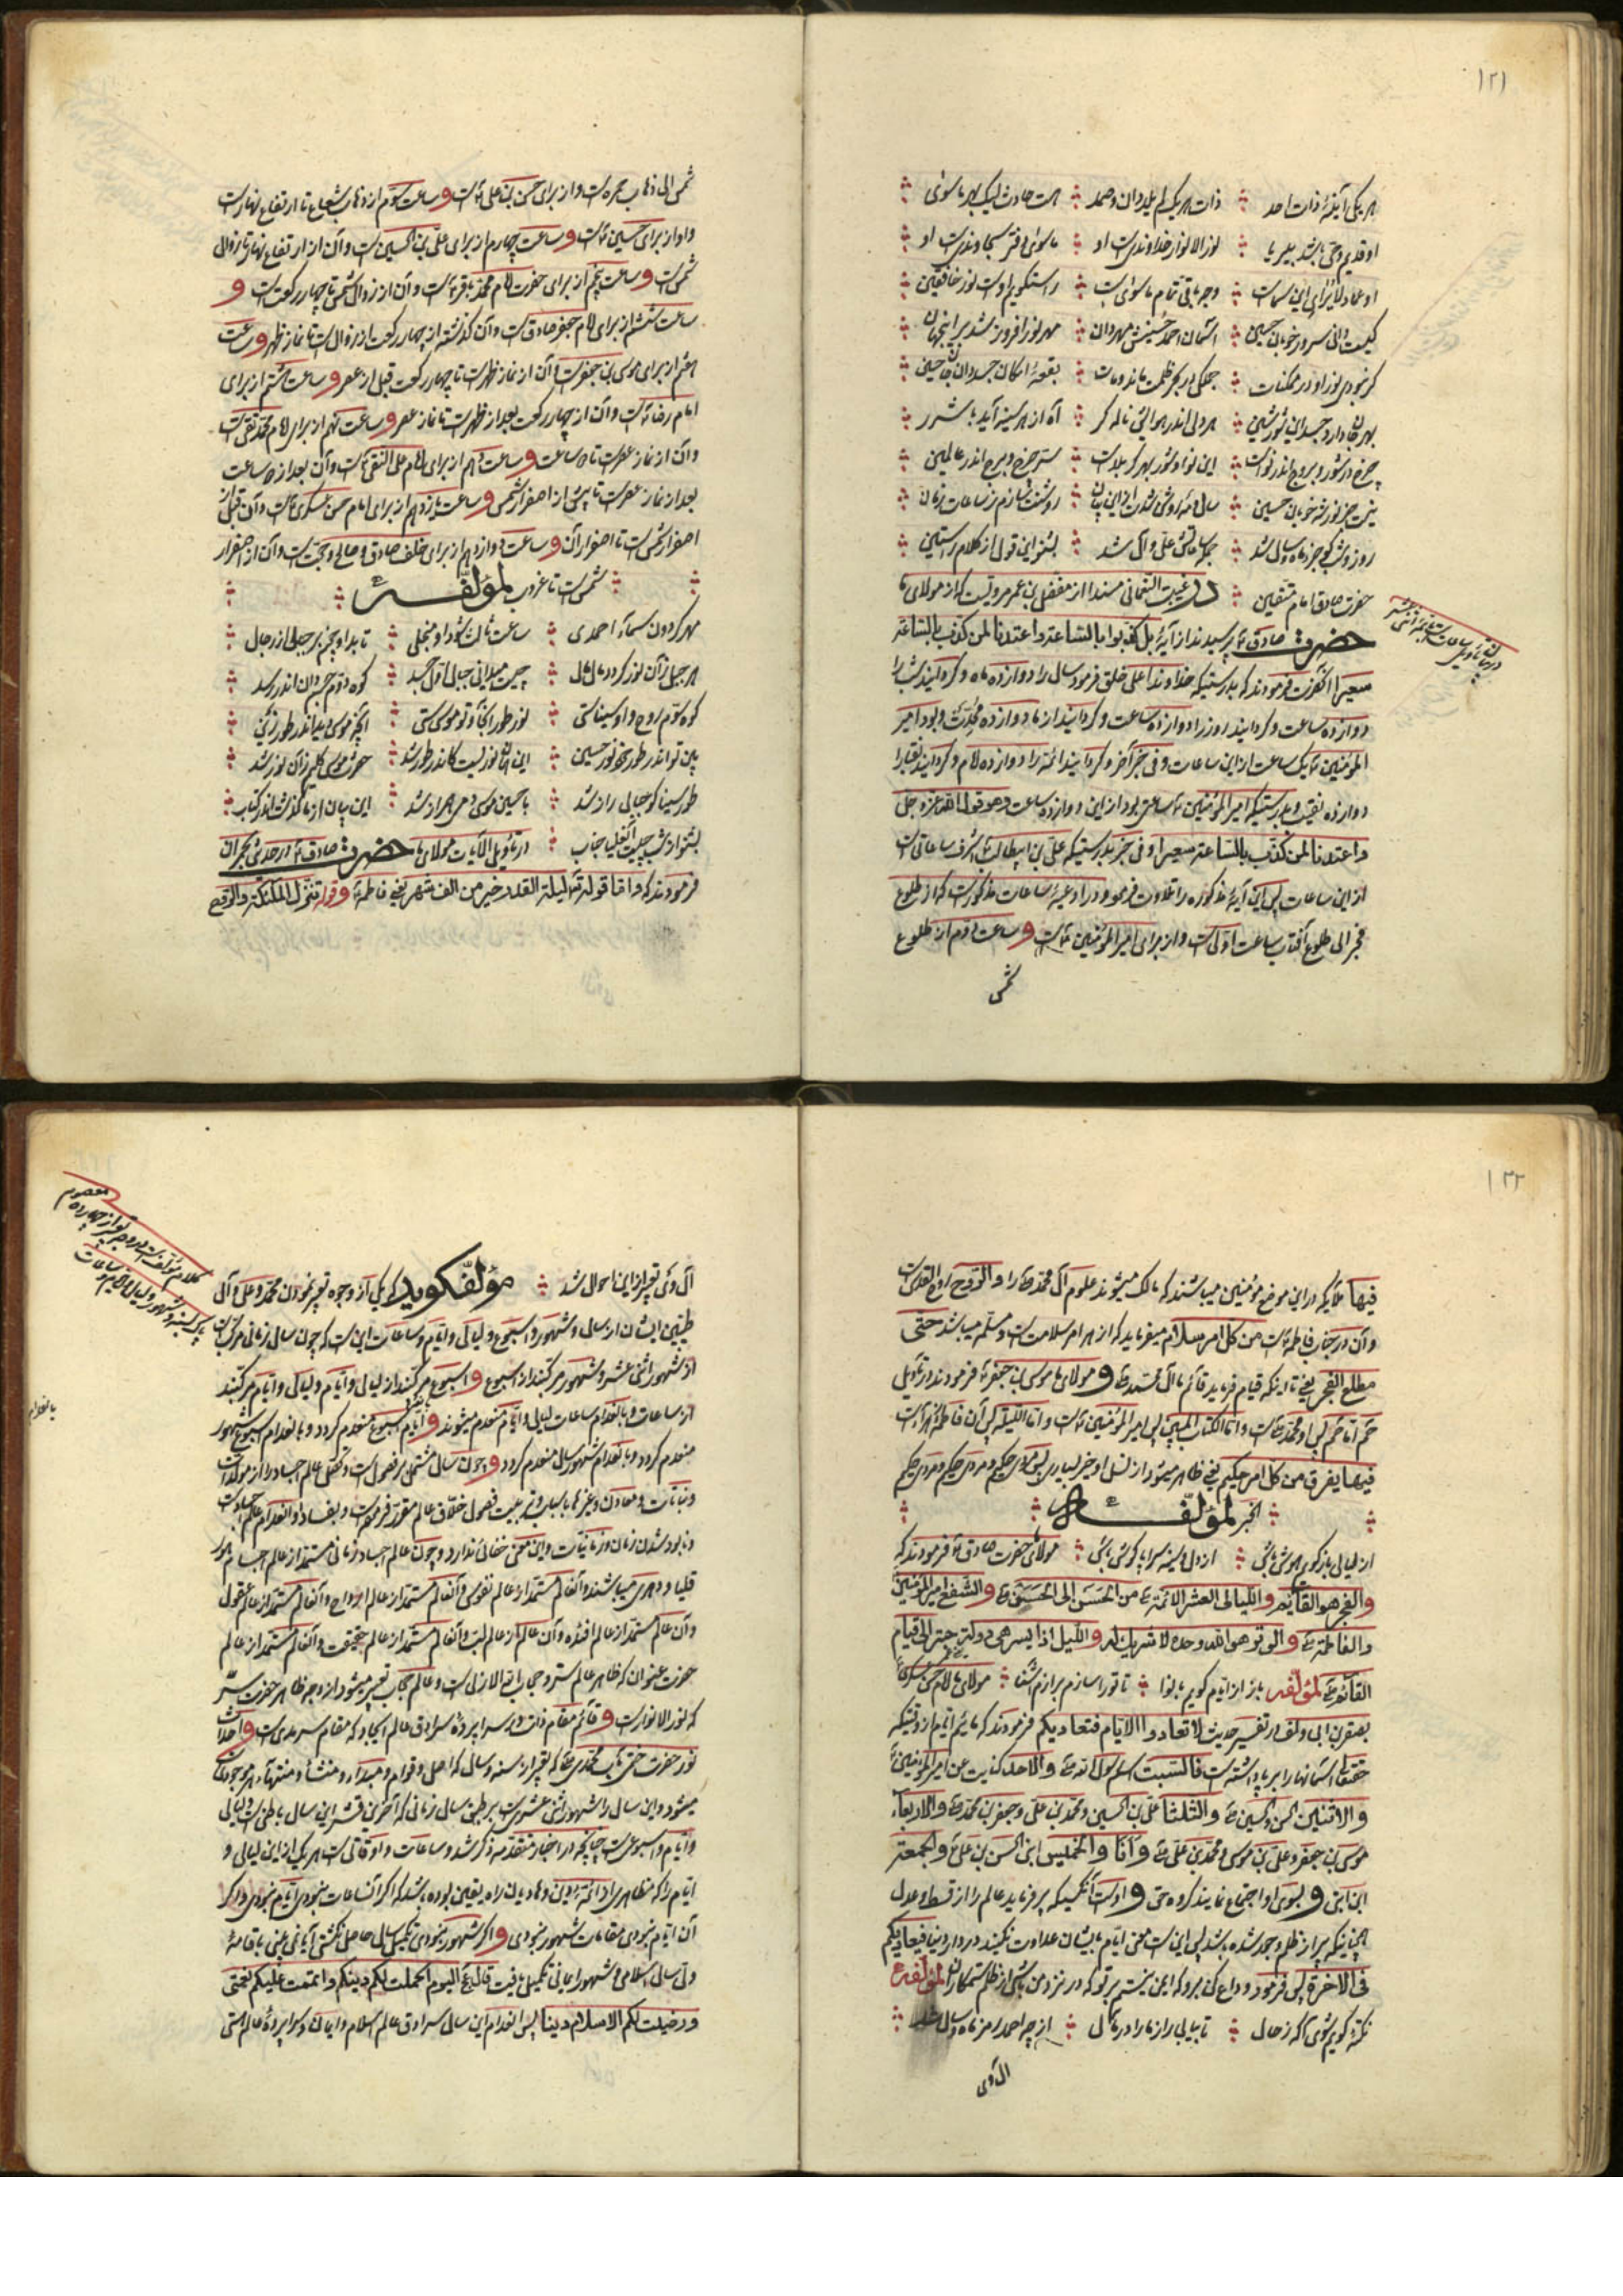 ١٢١
هر یکی آیینهٔ ذات احد ذات هر یک لم یلد دان و صمد هست حادث لیک بهر ما سوای
او قدیم و حی باشد بی‌ریا نور الانوار خداوندست او ما سوای
او عماد وجه باقی تمام ما سوای راست گویم اوست نور خافقین
کیست دانی سرور خوبان حسین آسمان احمد حسینش مهر دان مهر نور افروز شد بر این جهان
گر نبودی نور او در ممکنات جملگی در بحر ظلمت ماند و مات بقعهٔ امکان جسد دان جان حسین
بهر جان دارد جسد این شور و شین هر دلی اندر هوایش ناله گر آه از هر سینه آید با شرر
چرخ در شور و بروج اندر نواست این نوا و شور بهر کربلاست
نیست جز نور شه خوبان حسین سال و مه روشن شدت از این بیان روشنت سازم ز ساعات زمان
روز و شب کو جزء ماه و سال شد جمله ساعاتش علی و آل شد بشنو این قول از کلام راستین
حضرت صادق امام متقین در غیبت النعمانی مسندا از مفضل بن عمر مرویست که از مولای ما
حضرت صادق ع پرسیدند از آیهٔ بل کذبوا بالساعة واعتدنا لمن کذب بالساعة
سعیرا آنحضرت فرمودند که بدرستیکه خداوند اعلی خلق فرمود سال را دوازده ماه و گردانید شب را
دوازده ساعت و گردانید روز را دوازده ساعت و گردانید از ما دوازده محدث و بود امیر
المؤمنین ع یک ساعت از این ساعات و فی خبر آخر و گردانید ائمه را دوازده امام و گردانید نقبا را
دوازده نقیب و بدرستیکه امیر المؤمنین ع ساعتی بود از این دوازده ساعت و هو قول الله عز و جل
واعتدنا لمن کذب بالساعة سعیرا و فی خبر بدرستیکه علی بن ابیطالب ع اشرف ساعاتی است
از این ساعات پس این آیهٔ مذکوره را تلاوت فرمود و در ادعیهٔ ساعات مذکورست که از طلوع
فجر الی طلوع آفتاب ساعت اولی است و از برای امیر المؤمنین ع است و ساعت دوم از طلوع
شمس
شمس الی ذهاب حمره است و از برای حسن بن علی ع است و ساعت سوم از ذهاب شعاع تا ارتفاع نهارست
و او از برای حسین ع است و ساعت چهارم از برای علی بن الحسین است و آن از ارتفاع نهار تا زوال
شمس است و ساعت پنجم از برای حضرت امام محمد باقر ع است و آن از زوال شمس تا چهار رکعت است و
ساعت ششم از برای امام جعفر صادق است و آن گذشتن از چهار رکعت از زوال است تا نماز ظهر و ساعت
هفتم از برای موسی بن جعفر است و آن از نماز ظهرست تا چهار رکعت قبل از عصر و ساعت هشتم از برای
امام رضا ع است و آن از چهار رکعت بعد از ظهرست تا نماز عصر و ساعت نهم از برای امام محمد تقی است
و آن از نماز عصرست تا ساعت و ساعت دهم از برای امام علی النقی ع است و آن بعد از ساعت
بعد از نماز عصرست تا پیش از اصفرار شمس و ساعت یازدهم از برای امام حسن عسکری ع است و آن قبل از
اصفرار شمس است تا اصفرار آن و ساعت دوازدهم از برای خلف صادق و صالح و حجت است و آن از اصفرار
شمس است تا غروب لمؤلفه
مهر گردون سماء احمدی ساعت ثالث شد او منجلی تا بدا و چرخ بر جبال از رجال
هر جبل زان نور گردد مال مال چیست میدانی جبال اول جسد کوه دوم جسم دان اندر رصد
کوه سوم روح و او سیناستی نور طور اینجا و تو موسی ستی آنچه موسی دید اندر طور زین
بین تو اندر طور خود نور حسین این همان نوریست کاندر طور شد حضرت موسی کلیم زان نور شد
طور سینا کو جبال راز شد با حسین موسی دمی همراز شد این بیان از ما گذشت اندر کتاب
بشنو از شب چیست آن عالیجناب در تاویل الآیات مولای ما حضرت صادق ع در حدیث نجران
فرمودند که و اما قوله تع لیلة القدر خیر من الف شهر یعنی فاطمه ع و قوله تنزل الملئکة والروح
١٢٢
فیها ملایکه در این موضع مؤمنین میباشند که مالک میشوند علوم آل محمد ص را و الروح روح القدس است
و آن در جناب فاطمه است من کل امر سلام میفرماید که از هر امر سلامت است و مسلم میباشد حتی
مطلع الفجر یعنی تا اینکه قیام فرماید قائم ما آل محمد ص و مولای ما موسی بن جعفر ع فرمودند در تاویل
حم اما حم پس او محمد ص است و اما الکتاب المبین پس امیر المؤمنین ع است و اما اللیلة پس آن فاطمه زهراء است
فیها یفرق من کل امر حکیم یعنی ظاهر میشود از نسل او خیر بسیاری پس مردی حکیم و مردی حکیم و مردی حکیم
الخبر لمؤلفه
از لیالی باز گویم هوش باش از دل و سینه سراپا گوش باش مولای حضرت صادق ع فرمودند که
والفجر هو القائم و اللیالی العشر الائمة ع من الحسن الی الحسن ع و الشفع امیر المؤمنین
والفاطمة ع و الوتر هو الله وحده لا شریک له و اللیل اذا یسر هی دولة حبتر الی قیام
القائم ع لمؤلفه باز از ایام گویم با نوا تا تو را سازم براز آشنا مولای ما امام حسن عسکری ع
بصقر بن ابی دلف در تفسیر حدیث لا تعادوا الایام فتعادیکم فرمودند که مائیم ایام از وقتیکه
حقتعالی آسمانها را برپا داشته است فالسبت اسم رسول الله ص و الاحد کنایت عن امیر المؤمنین ع
و الاثنین الحسن والحسین ع و الثلثا علی بن الحسین و محمد بن علی و جعفر بن محمد ع و الاربعاء
موسی بن جعفر و علی بن موسی و محمد بن علی ع و انا و الخمیس ابنی الحسن بن علی ع و الجمعة
ابن ابنی و بسوی او اجتماع نمایند گروه حق و اوست آنکسیکه پر نماید عالم را از قسط و عدل
همچنانکه پر از ظلم و جور شده باشد پس این است معنی ایام با ایشان عداوت نکنید در دار دنیا فیعادیکم
فی الآخرة پس فرمود وداع کن برو که ایمن نیستم بر تو که در نزد من باشی از ظلم ستمکاران لمؤلفه
نکته گویم شوی آگه ز حال تا بیابی راز ما را در مآل از چه احمد رمز ماه و سال شد
آل وی
آل وی تعبیر از این احوال شد مؤلف گوید که یکی از وجوه تعبیر نمودن محمد و علی و آل
طیبین ایشان از سال و شهور و اسبوع و لیالی و ایام و ساعات این است که چون سال زمانی مرکب است
از شهور اثنی عشر و شهور مرکبند از اسبوع و اسبوع مرکبند از لیالی و ایام و لیالی و ایام مرکبند
از ساعات و بانعدام ساعات لیالی و ایام منعدم میشوند و ایام اسبوع منعدم گردد و بانعدام اسبوع شهور
منعدم گردد و بانعدام شهور سال منعدم گردد و چون سال مشتمل بر فصول است و تکمل عالم اجساد را از مولدات
و نباتات و معادن و غیرها باسباب و تربیت فصول خلاق عالم مقرر فرموده است و بفساد و انعدام عالم اجساد
و نابود شدن زمان و زمانیات و این معنی خفائی ندارد و چون عالم اجساد زمانی مستمد از عالم اجسام هور
قلیا و دهری میباشند و آنعالم مستمد از عالم نفوس و آنعالم مستمد از عالم ارواح و آنعالم مستمد از عالم عقول
و آن عالم مستمد از عالم افئده و آن عالم از عالم لب و آنعالم مستمد از عالم حقیقت و آنعالم مستمد از عالم
حضرت عنوان که ظاهر عالم ستر و حجاب رابع الازلی است و عالم حجاب تعبیر میشود از وجه ظاهر حضرت سر
که نور الانوار است و قائم مقام ذات در سراپردهٔ سرادق عالم ایجاد که مقام سرمدی است و
نور حضرت ختمی مآب محمدی ص که تعبیر از سنه و سال که اصل و قوام و مبدء و منشاء و منتهاء هر موجودات
میشود و این سال را شهور اثنی عشرست بر طبق سال زمانی که آخرین قشر این سال باطنی است و لیالی
و ایام و اسبوعست چنانچه در اخبار متقدمه ذکر شد و ساعات و اوقاتی است هر یک از این لیالی و
ایام را که مظاهر ائمهٔ دین و هادیان راه یقین بوده باشد که اگر آنساعات نبودی ایام نبودی و اگر
آن ایام نبودی مقامات شهور نبودی و اگر شهور نبودی تکمیل سال حاصل نگشتی آیا نمی بینی باقامهٔ
ولی سال اسلامی و شهور ایمانی تکمیل یافت قال تع الیوم اکملت لکم دینکم و اتممت علیکم نعمتی
و رضیت لکم الاسلام دینا پس انعدام این سال سرادق عالم اسلام و ایمان و سراپردهٔ عالم هستی